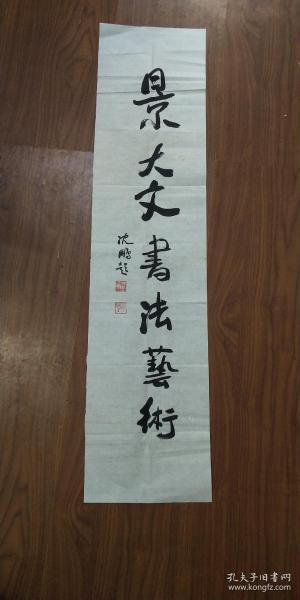 景大文書法藝術
沈鵬題
孔夫子旧书网
www.kongfz.com